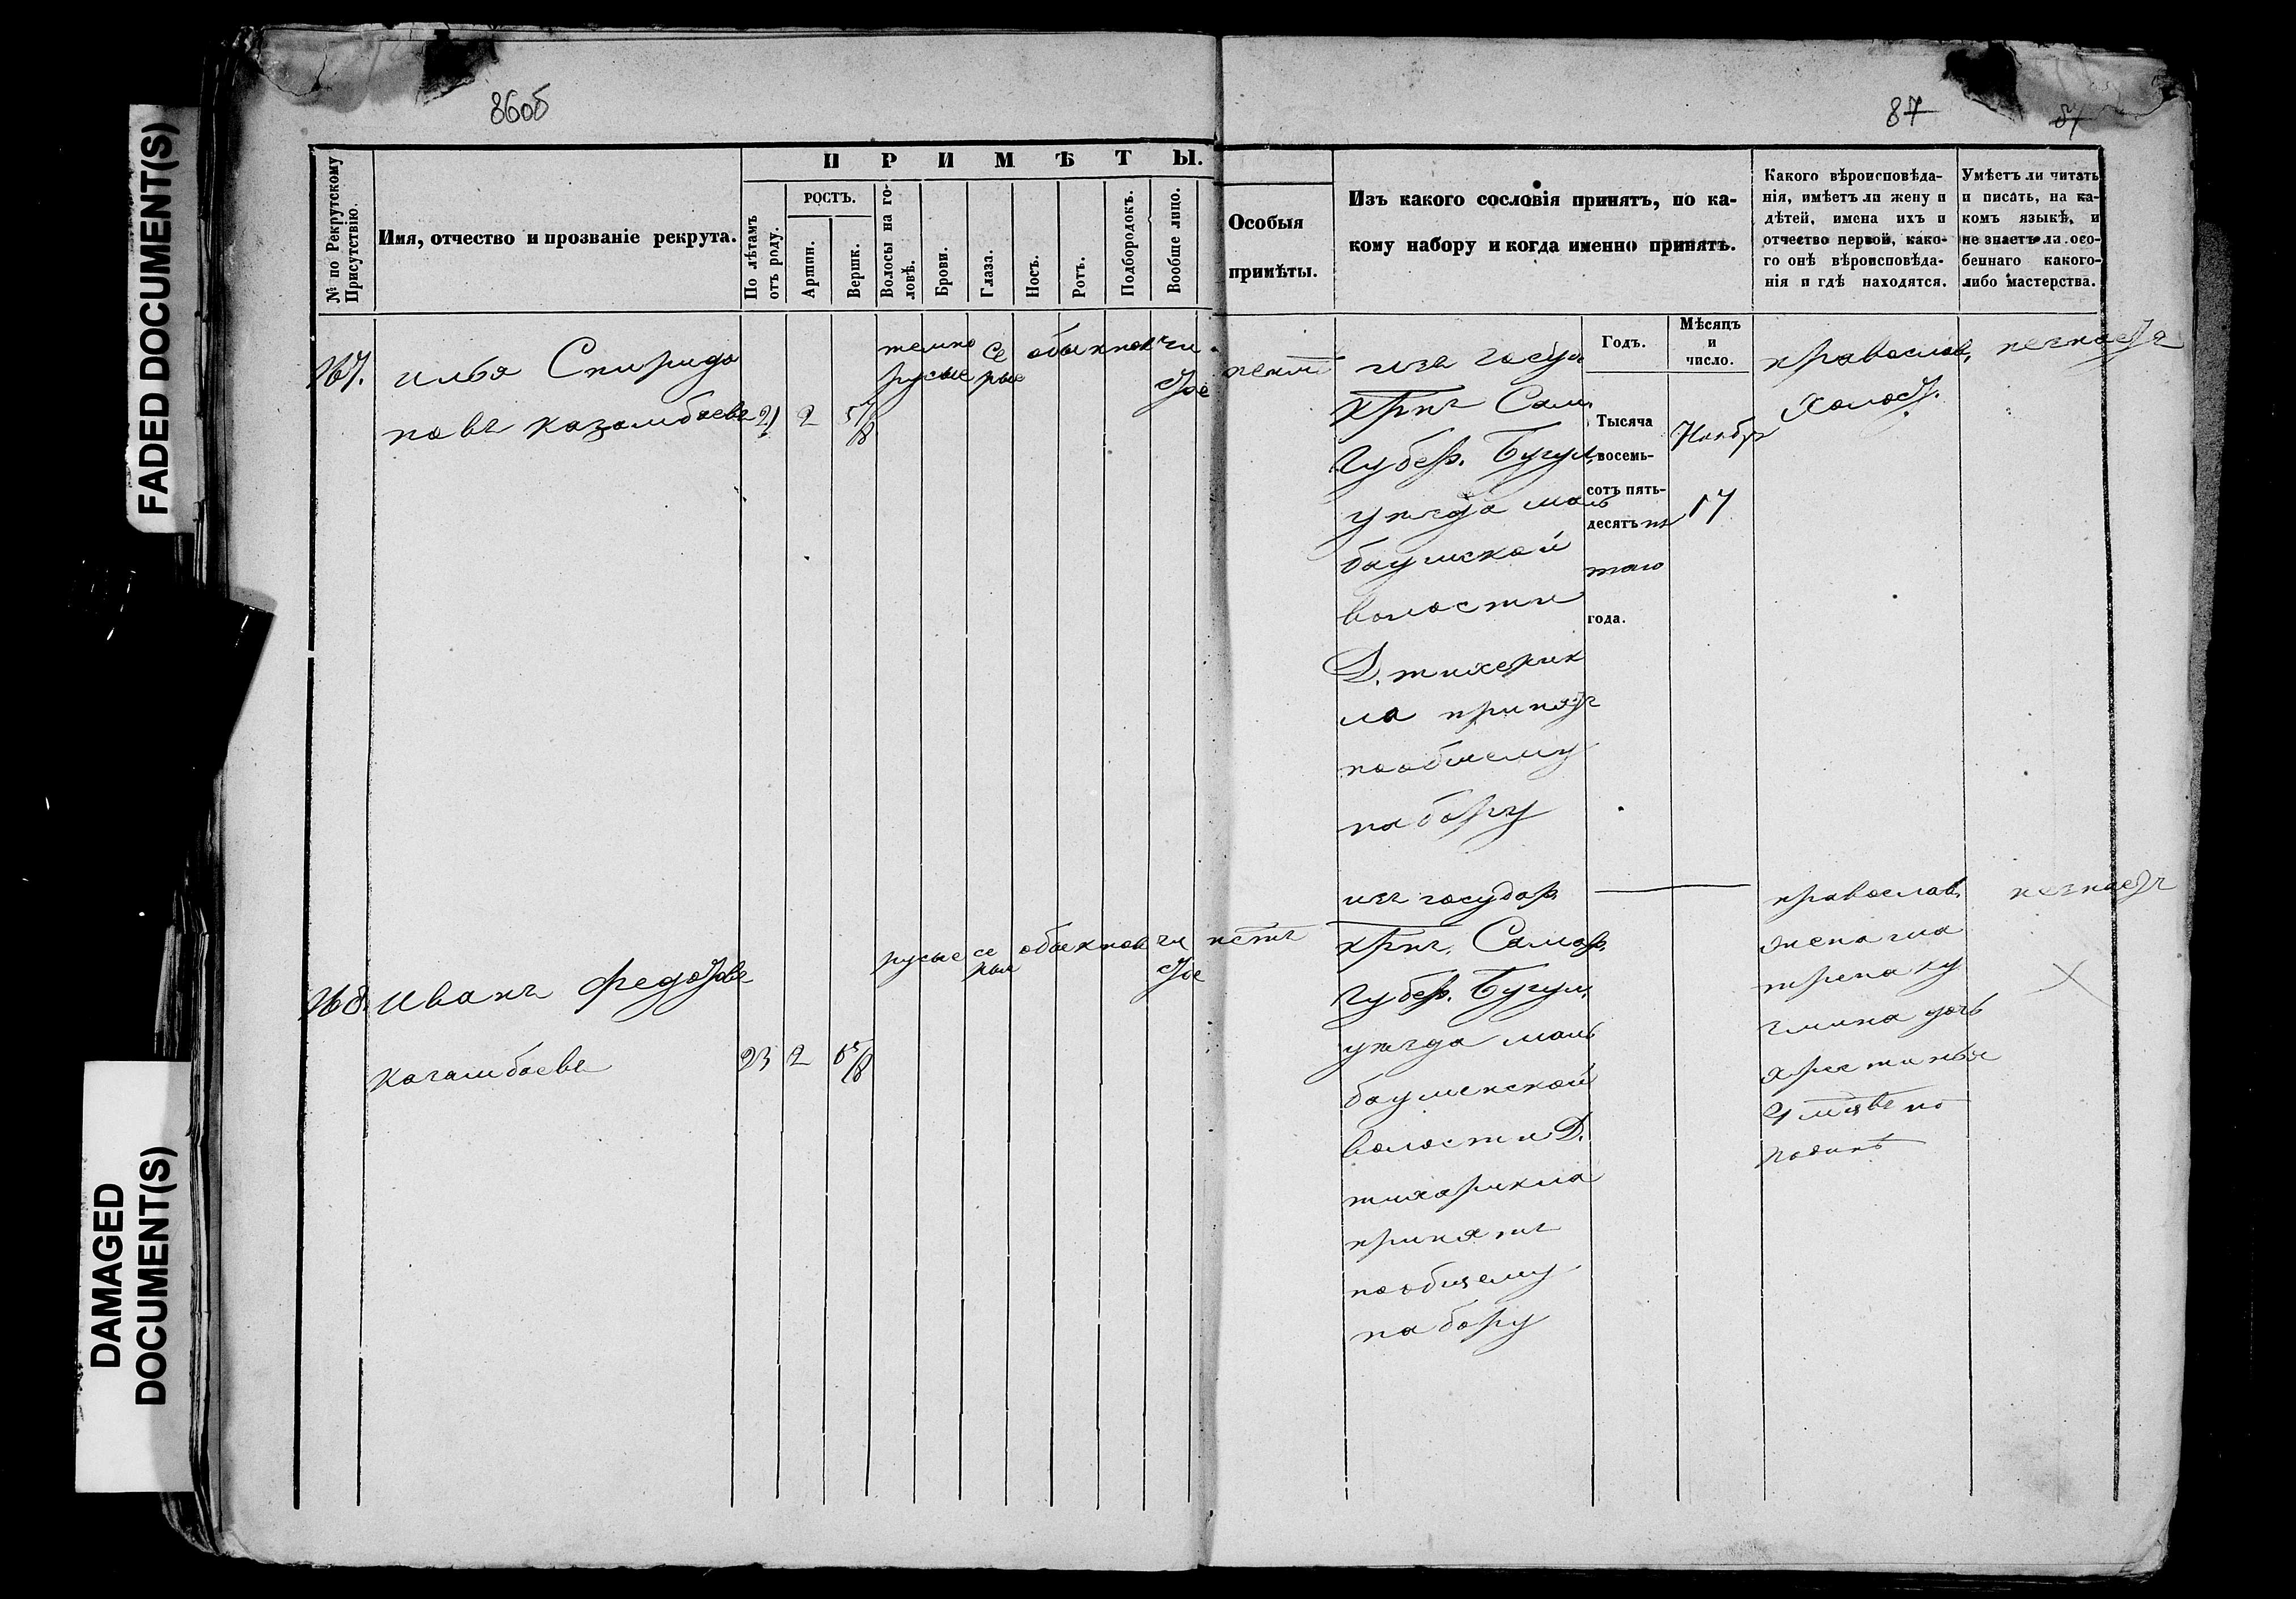 FADED DOCUMENT(S)
DAMAGED
DOCUMENT(S)
86об
87
87
№ по Рекрутскому
Присутствію.
Имя, отчество и прозваніе рекрута.
ПРИМѢТЫ.
По лѣтамъ
отъ роду.
РОСТЪ.
Аршин.
Вершк.
Волосы на го-
ловѣ.
Брови.
Глаза.
Носъ.
Ротъ.
Подбородокъ.
Вообще лицо.
Особыя
примѣты.
Изъ какого сословія принятъ, по ка-
кому набору и когда именно принятъ.
Какого вѣроисповѣда-
нія, имѣетъ ли жену и
дѣтей, имена ихъ и
отчество первой, како-
го онѣ вѣроисповѣда-
нія и гдѣ находятся.
Умѣетъ ли читать
и писать, на ка-
комъ языкѣ, и
не знаетъ ли осо-
беннаго какого-
либо мастерства.
Годъ.
Мѣсяцъ
и
число.
167.
илья Спиридо
новъ казамбаевъ
21
2
5 7/8
темно
русые
се
рые
обыкнов
чи
стое
изъ госуд
крнъ Сам.
Губер. Бугул.
уѣзда маль
баушской
волости
Д. тихерик
ла принятъ
пообщему
набору
Тысяча
восемь-
сотъ пять-
десятъ пя
таго
года.
Ноябр
17
православ.
Холост.
незнаетъ
168.
иванъ федоровъ
казамбаевъ
23
2
русые
се
рые
обыкнов
чи
стое
нетъ
изъ государ
крнъ. Самар.
Губер. Бугул.
уѣзда маль
баушенской
волости Д.
тихариклa
принятъ
пообщему
набору
православ.
жена ма
трена ку
змина дочь
христинья
незнаетъ